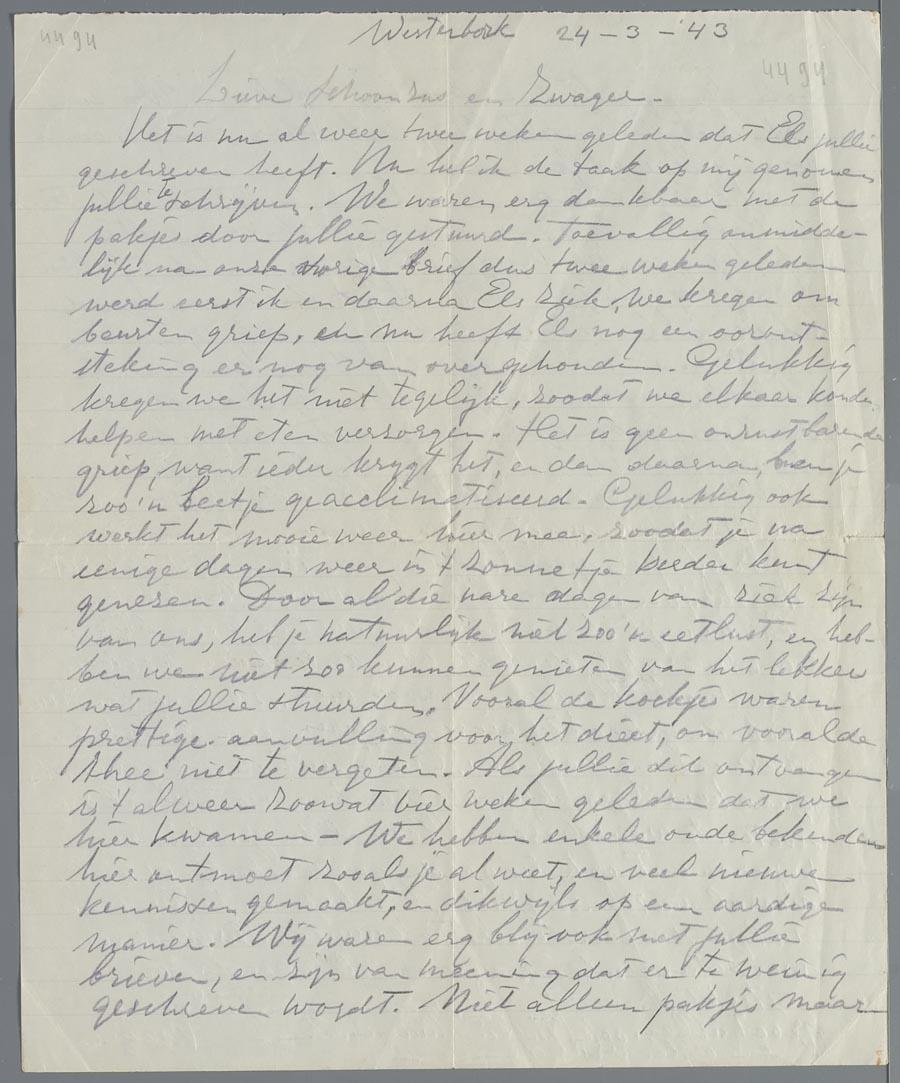 4494
Westerbork 24-3-'43
4494
Lieve Schoonzus en Zwager.
Het is nu al weer twee weken geleden dat Els jullie
geschreven heeft. Nu heb ik de taak op mij genomen
jullie te schrijven. We waren erg dankbaar met de
pakjes door jullie gestuurd. Toevallig onmidde-
lijk na onze vorige brief dus twee weken geleden
werd eerst ik en daarna Els ziek, we kregen om
beurten griep, en nu heeft Els nog eenooront-
steking er nog van overgehouden. Gelukkig
kregen we het niet tegelijk, zoodat we elkaar konden
helpen met eten verzorgen. Het is geen onrustbarende
griep, want ieder krygt het, en dan daarna, ben je
zoo'n beetje geacclimatiseerd. Gelukkig ook
werkt het mooie weer hier mee, zoodat je na
eenige dagen weer in 't zonnetje verder kunt
genezen. Door al die nare dagen van ziek zijn
van ons, heb je natuurlijk niet zoo'n eetlust, en heb-
ben we niet zoo kunnen genieten van het lekkers
wat jullie stuurden. Vooral de koekjes waren
prettige aanvulling voor het dieet, om vooral de
thee niet te vergeten. Als jullie dit ontvangen
is 't alweer zoowat vier weken geleden dat we
hier kwamen - We hebben enkele oude bekenden
hier ontmoet zooals je al weet, en veel nieuwe
kennissen gemaakt, en dikwijls op een aardige
manier. Wij waren erg blij ook met jullie
brieven, en zijn van meening dat er te weinig
geschreven wordt. Niet alleen pakjes maar